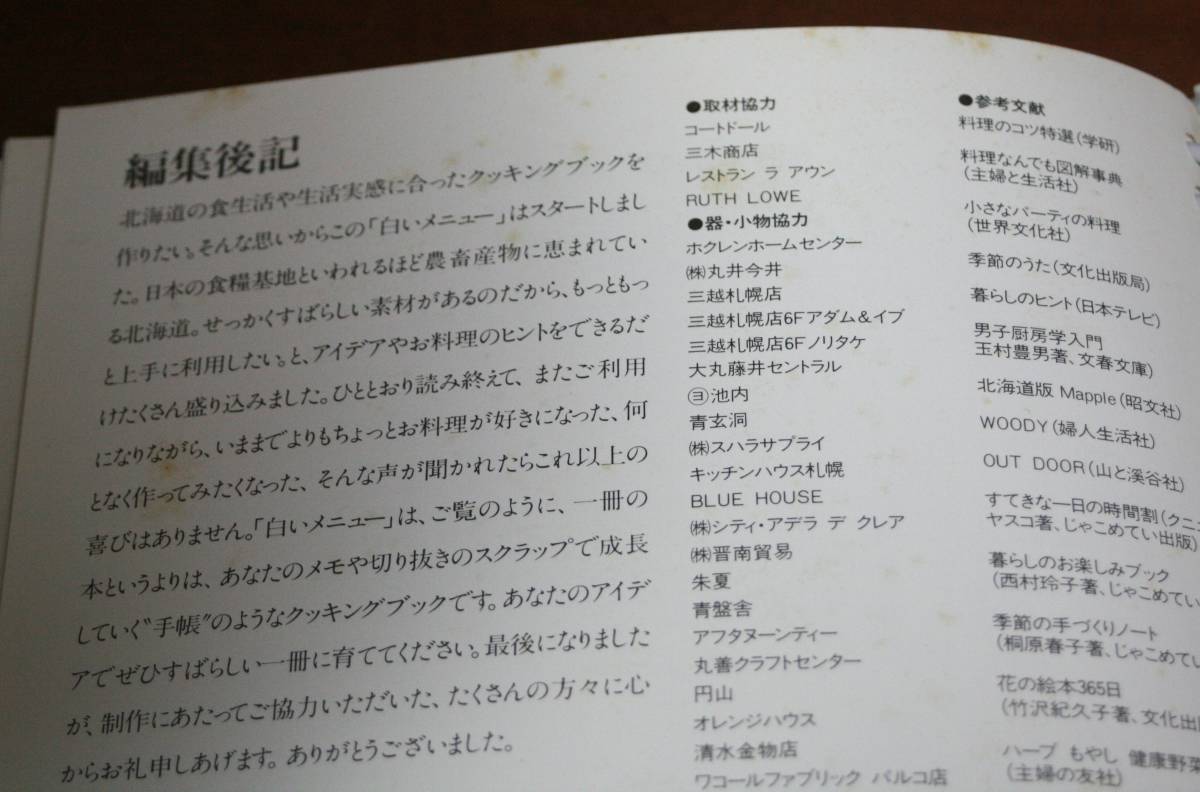 編集後記
北海道の食生活や生活実感に合ったクッキングブックを
作りたい。そんな思いからこの「白いメニュー」はスタートしまし
た。日本の食糧基地といわれるほど農畜産物に恵まれてい
る北海道。せっかくすばらしい素材があるのだから、もっともっ
と上手に利用したい。と、アイデアやお料理のヒントをできるだ
けたくさん盛り込みました。ひととおり読み終えて、またご利用
になりながら、いままでよりもちょっとお料理が好きになった、何
となく作ってみたくなった、そんな声が聞かれたらこれ以上の
喜びはありません。「白いメニュー」は、ご覧のように、一冊の
本というよりは、あなたのメモや切り抜きのスクラップで成長
していく“手帳”のようなクッキングブックです。あなたのアイデ
アでぜひすばらしい一冊に育ててください。最後になりました
が、制作にあたってご協力いただいた、たくさんの方々に心
からお礼申しあげます。ありがとうございました。
●取材協力
コートドール
三木商店
レストラン ラ アウン
RUTH LOWE
●器・小物協力
ホクレンホームセンター
㈱丸井今井
三越札幌店
三越札幌店6Fアダム&イブ
三越札幌店6Fノリタケ
大丸藤井セントラル
㋵池内
青玄洞
㈱スハラサプライ
キッチンハウス札幌
BLUE HOUSE
㈱シティ・アデラ デ クレア
㈱晋南貿易
朱夏
青盤舎
アフタヌーンティー
丸善クラフトセンター
円山
オレンジハウス
清水金物店
ワコールファブリック パルコ店
●参考文献
料理のコツ特選(学研)
料理なんでも図解事典
(主婦と生活社)
小さなパーティの料理
(世界文化社)
季節のうた(文化出版局)
暮らしのヒント(日本テレビ)
男子厨房学入門
玉村豊男著、文春文庫)
北海道版 Mapple(昭文社)
WOODY(婦人生活社)
OUT DOOR(山と溪谷社)
すてきな一日の時間割(クニ
ヤスコ著、じゃこめてい出版)
暮らしのお楽しみブック
(西村玲子著、じゃこめてい
季節の手づくりノート
(桐原春子著、じゃこめてい
花の絵本365日
(竹沢紀久子著、文化出版
ハーブ もやし 健康野菜
(主婦の友社)